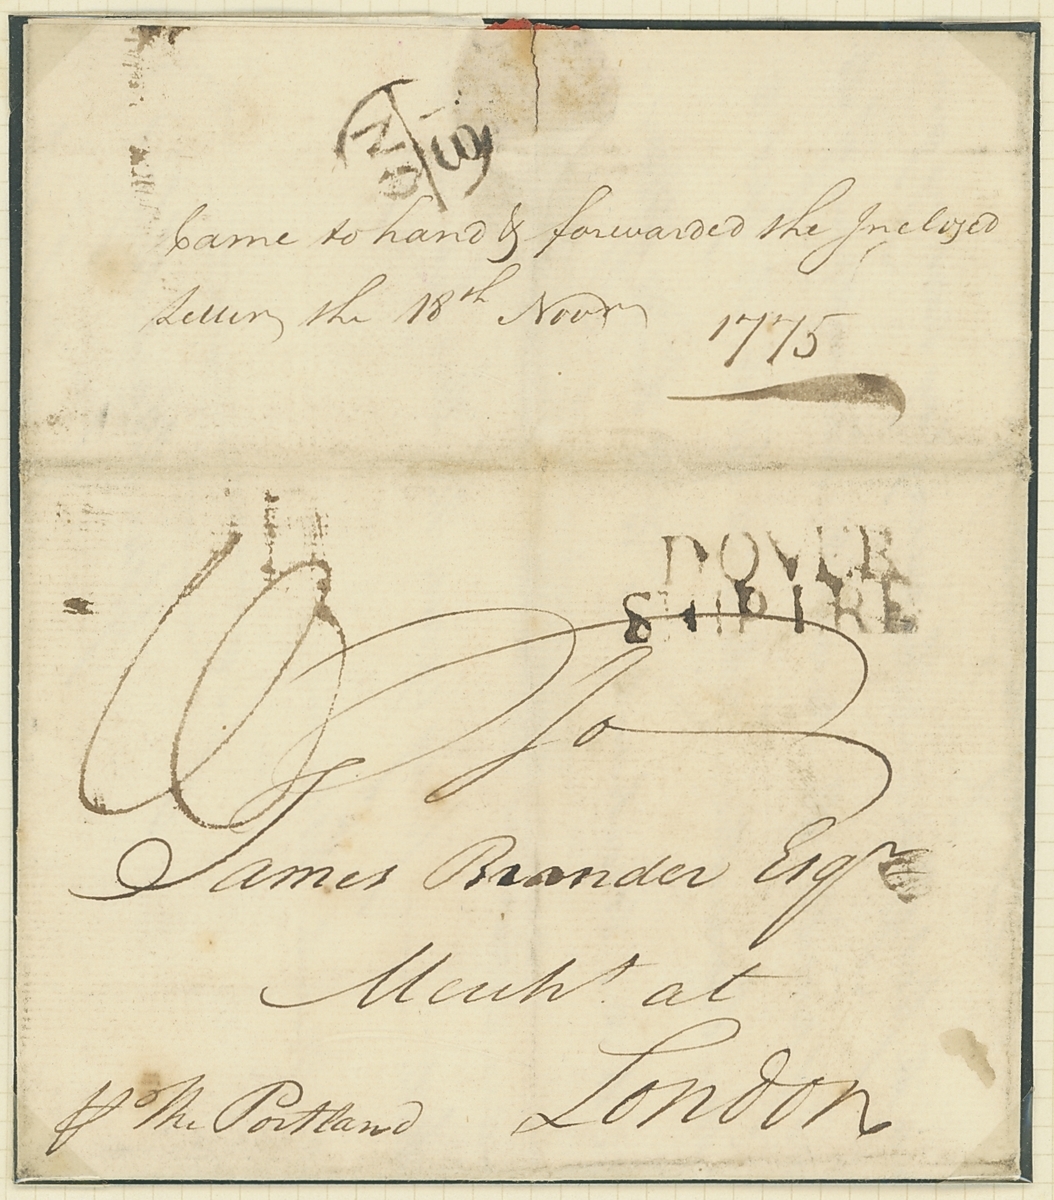 Came to hand & forwarded the Inclozed
Letter, the 18th Novr
1775
DOVER
SHIP LRE
To
James Brander Esqr
Mercht at
London
pr The Portland